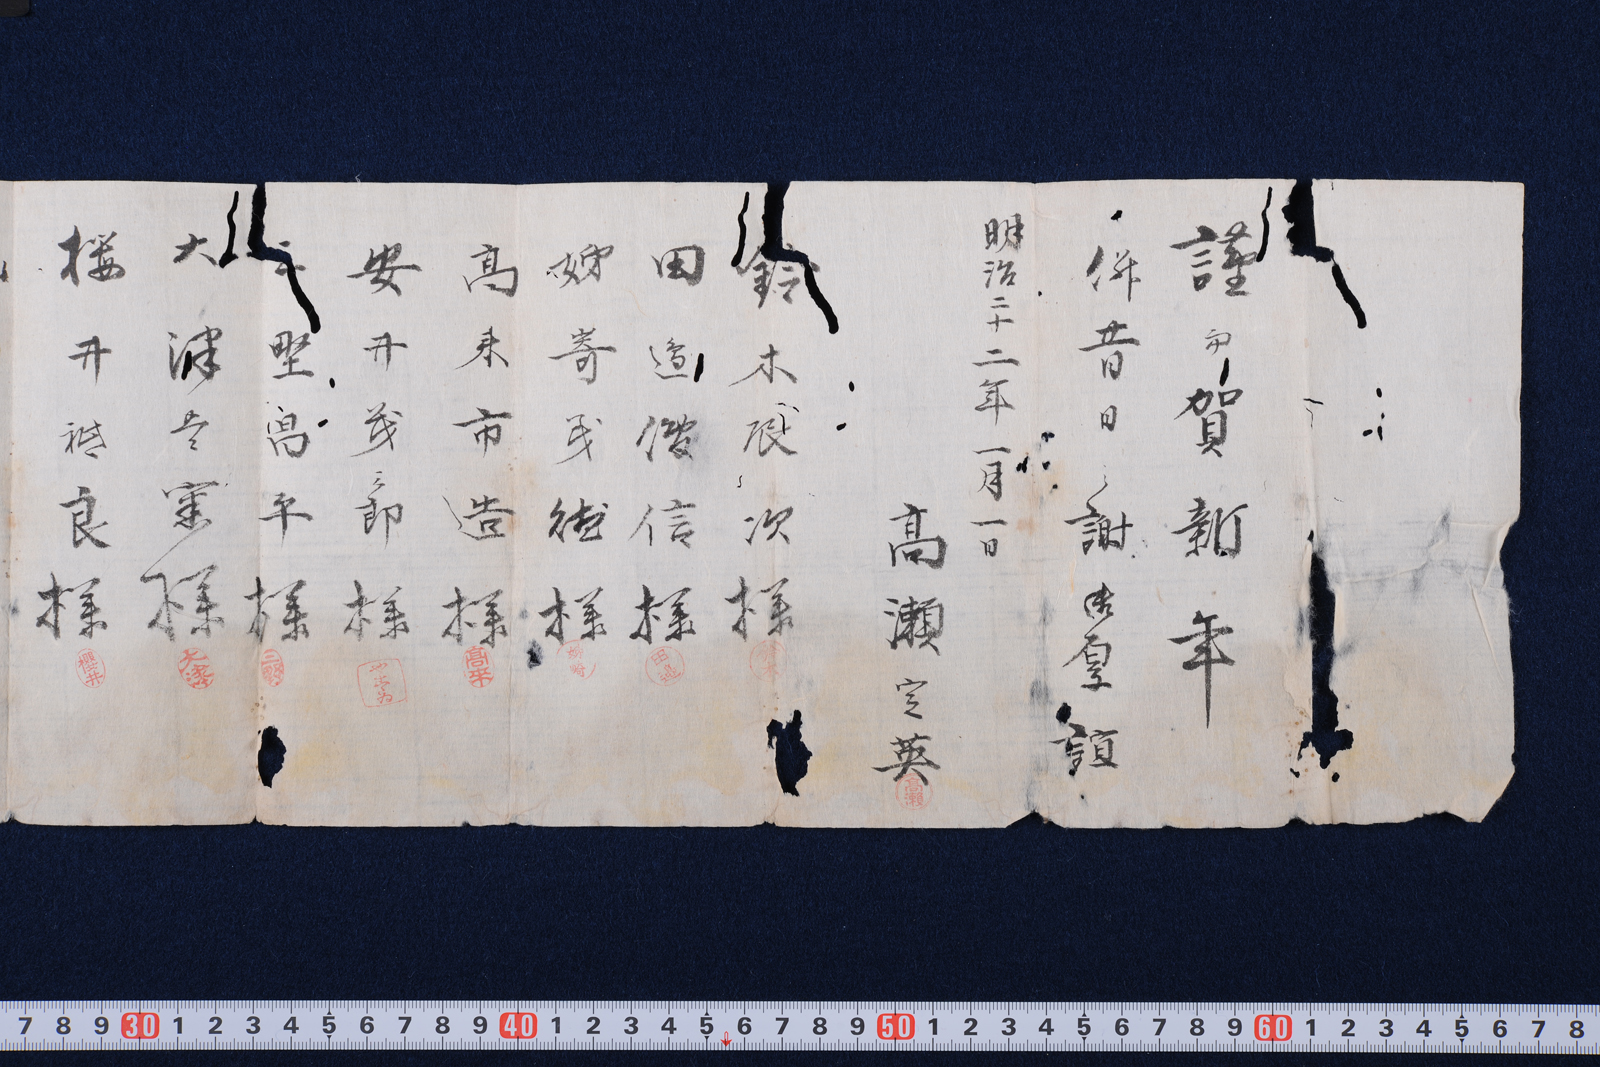 謹而賀新年
併昔日之謝御厚誼
明治二十二年一月一日
高瀬定英
鈴木辰次様
田邉備信様
姉寄茂徳様
高来市造様
安井茂三郎様
三野高平様
大津様
桜井良様
高瀬
田辺
高来
三野
大津
櫻井
7 8 9 30 1 2 3 4 5 6 7 8 9 40 1 2 3 4 5 6 7 8 9 50 1 2 3 4 5 6 7 8 9 60 1 2 3 4 5 6 7 8